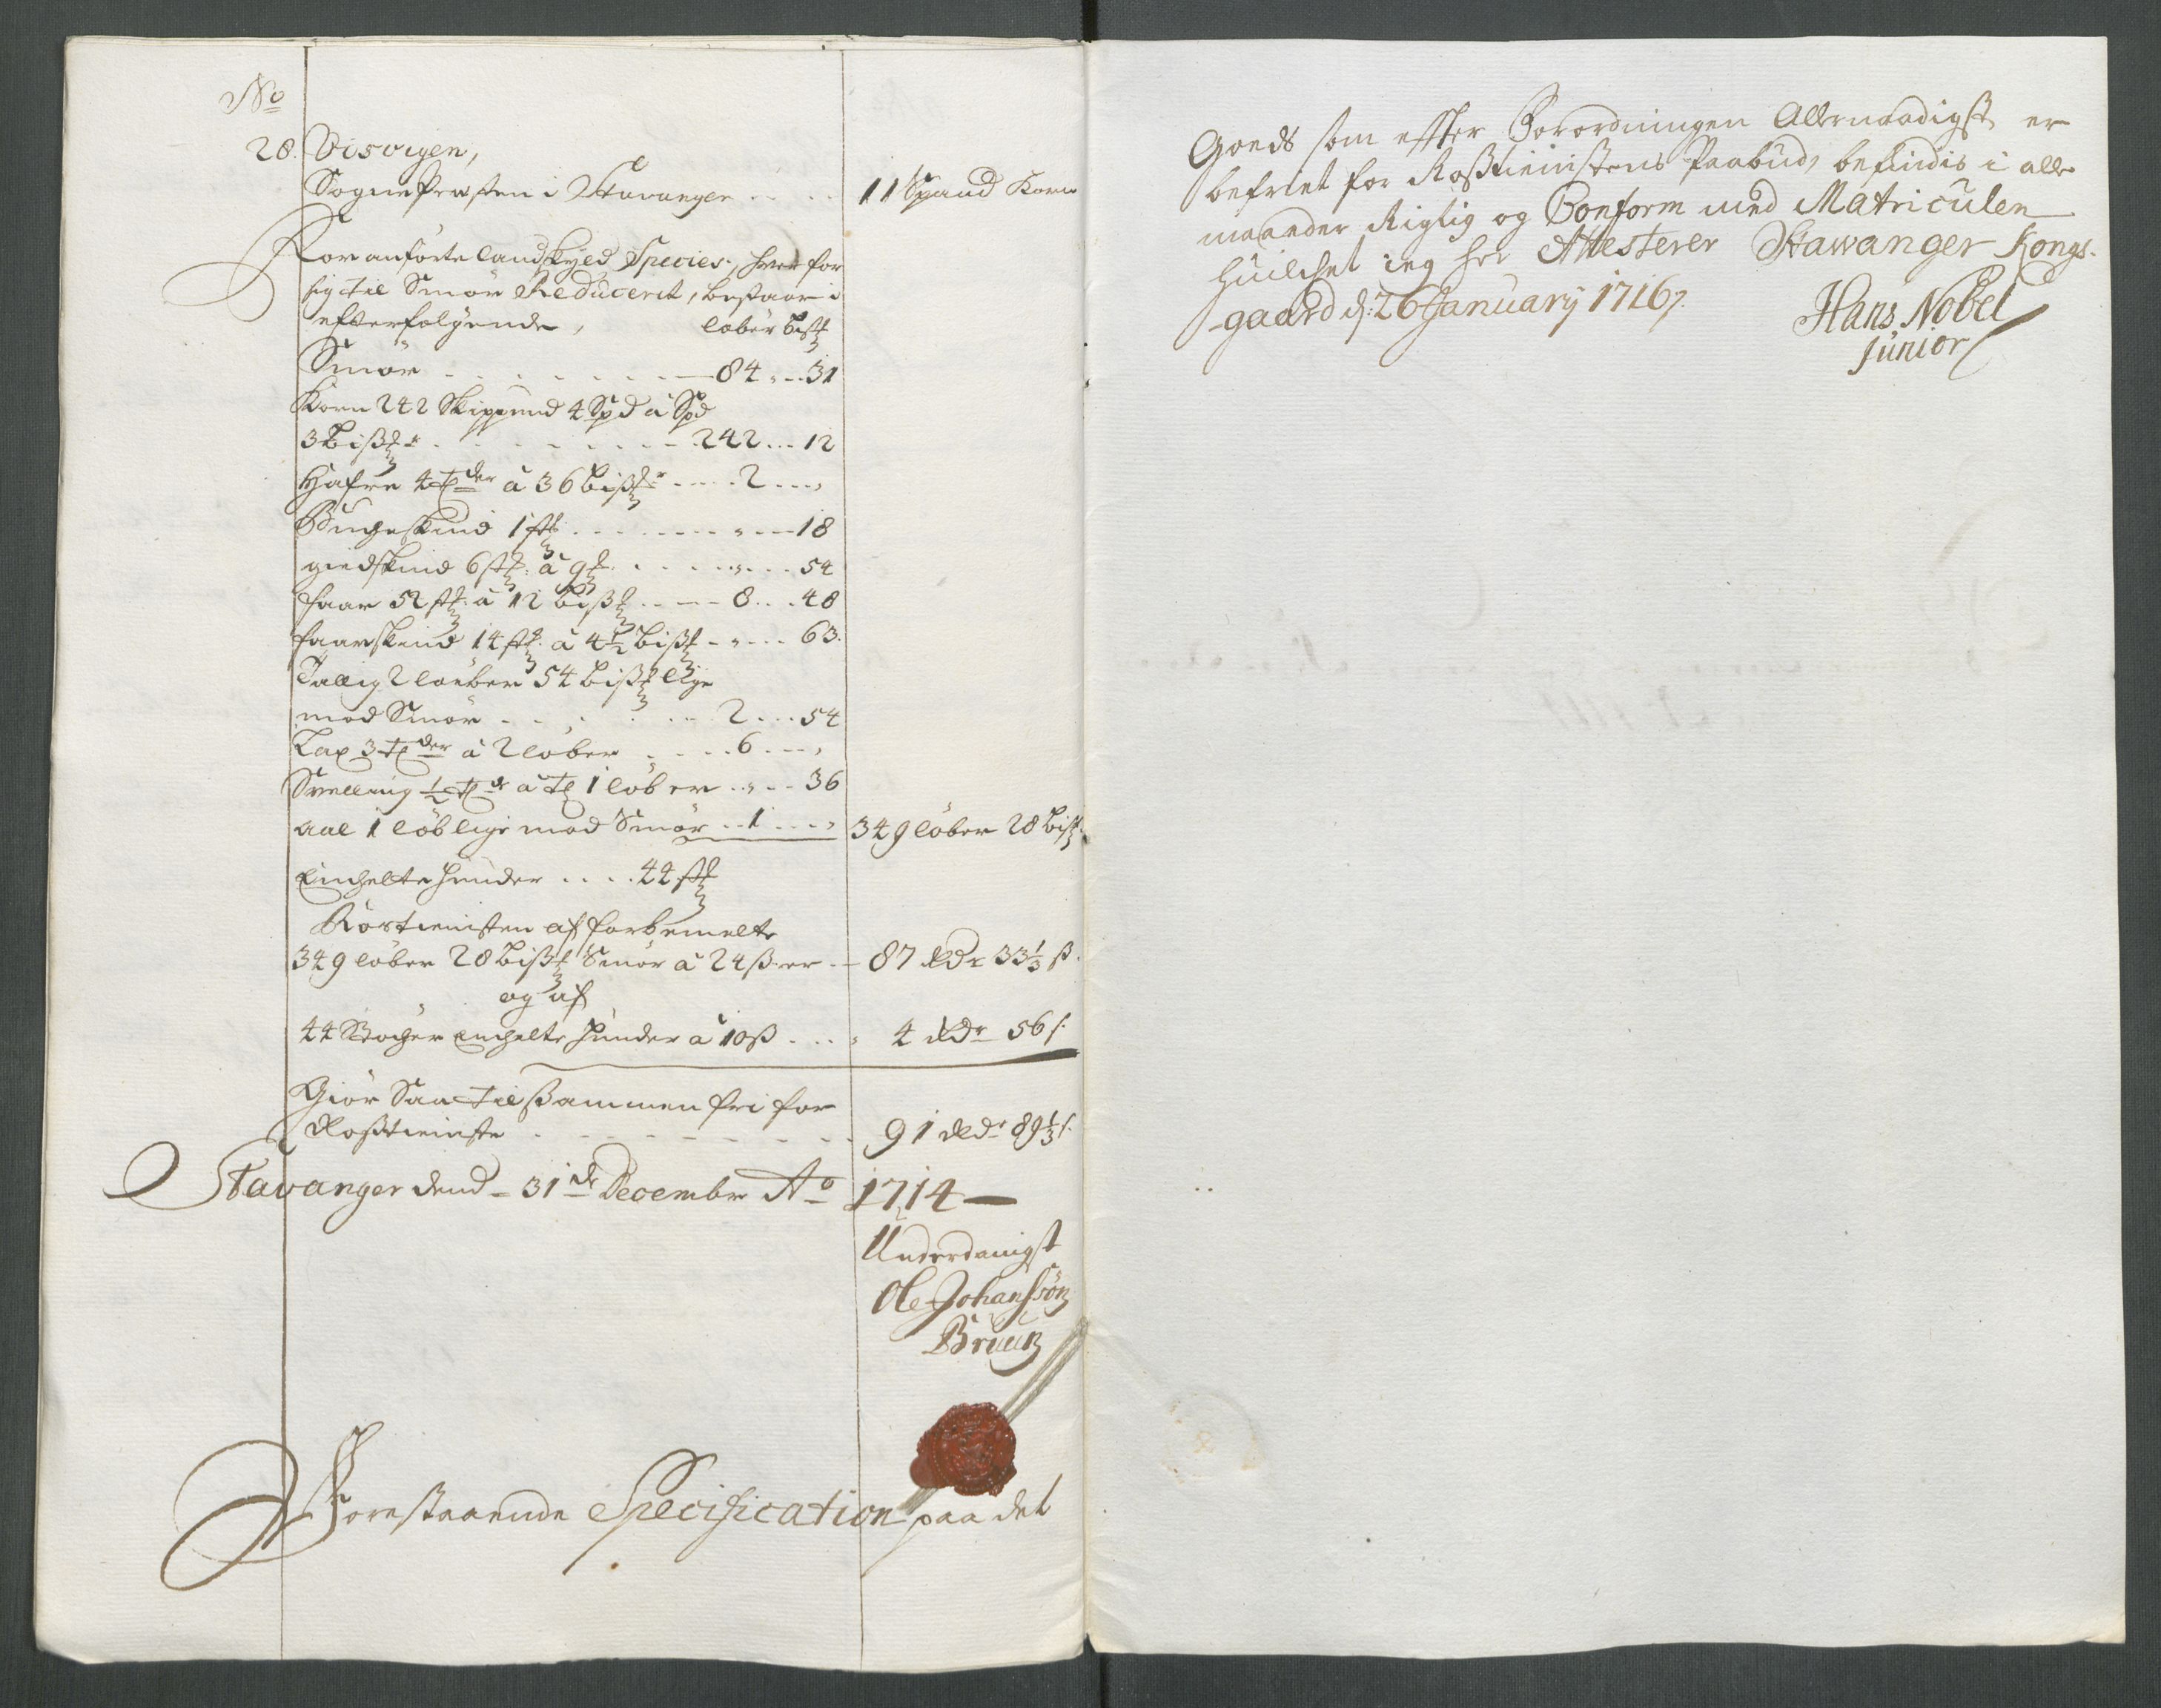 No
28. Visvigen,
SognePresten i Stavanger . . . . 11 Spand Korn
Foranførte landskyld Species, hver for
sig til Smør Reducerit, bestaar i
efterfølgende, løber bißt
Smør . . . . . . . 84 . . 31
Korn 242 Skippund 4 Spd a Spd
3 bißt . . . . . . . 242 . . 12
Hafre 4 Tder a 36 bißtr . . . . 2 . . . "
Buchskind 1 st: . . . . . . . " . . 18
giedskind 6 st: a 9 . . . . . " . . . 54
faar 52 st: a 12 bißt . . . . 8 . . . 48
faarskind 14 st: a 4½ bißt . . " . . . 63.
Tallig 2 løeber 54 bißt lige
mod Smør . . . . . . . 2 . . . 54
Lax 3 Tder a 2 løber . . . . 6 . . . "
Smelling ½ Tde a Td 1 løb er . . " . . 36
aal 1 løb lige mod Smør . . 1 . . . " 349 løber 28 bißt
Enchelte Huuder . . . . 44 st
Rostienisten af forbemelte
349 løber 28 bißt Smør a 24 ß er . — 87 Rdr 33⅓ ß.
og af
44 Støcher enchelte Huuder a 10 ß . . . . 4 Rdr 56 ß
Giør Saa Tilßammen fri for
Roßtieniste . . . . . . . . . 91 Rdr 89⅓ ß.
Stavanger dend 31de Decembr Ao 1714 —
Underdanigst
Ole Johanssøn
Bruun
Forestaaende Specification paa det
Goeds som effter Forordningen Allernaadigst er
befriet for Roßtienistens Paabud, befindis i alle
maader Rigtig og Conform med Matriculen
huilchet ieg her Attesterer Stawanger Kongs-
-gaard d: 26 January 1716,
Hans Nobel
Junior